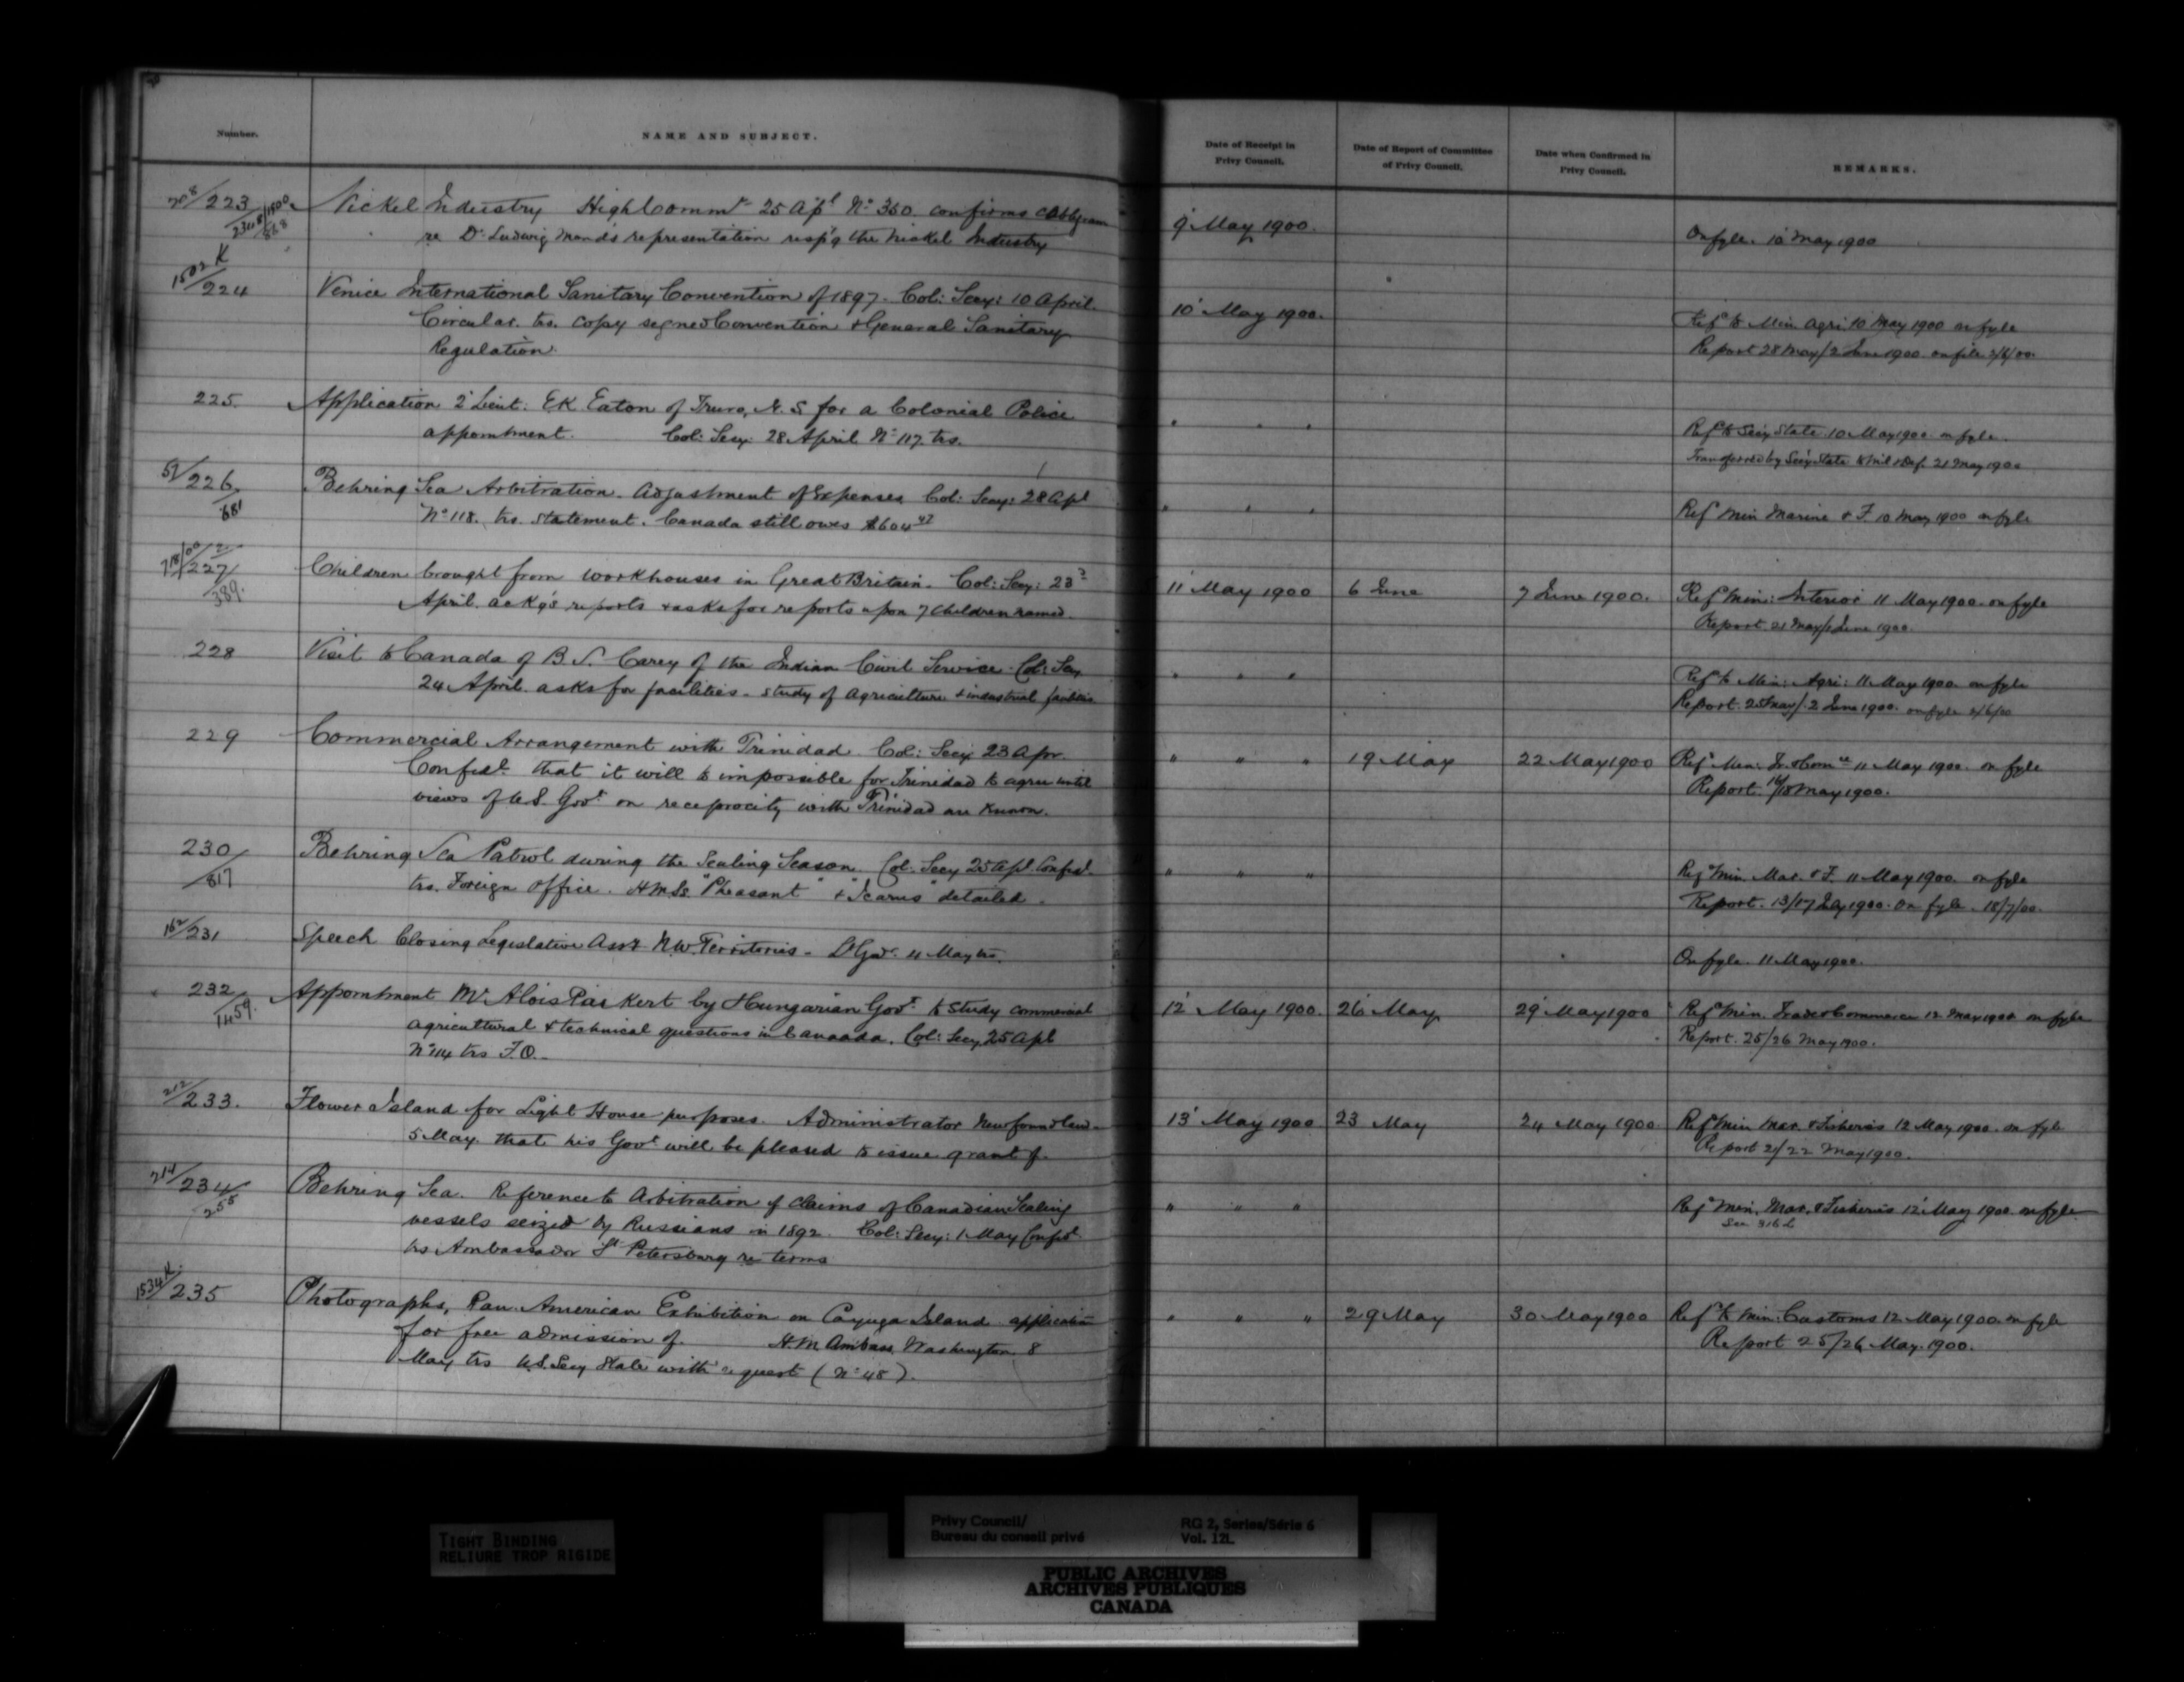 Number.
NAME AND SUBJECT.
Date of Receipt in
Privy Council.
Date of Report of Committee
of Privy Council.
Date when Confirmed in
Privy Council.
REMARKS.
223
Nickel Industry High Commr 25 Apl No 350. confirms cablegram
re Dr Ludwig Mond's representation resp'g the Nickel Industry
9' May 1900.
On fyle. 10 May 1900
1502 K
224
Venice International Sanitary Convention of 1897. Col: Secy: 10 April.
Circular. trs. copy signed Convention & General Sanitary
Regulation.
10' May 1900.
Refd to Min Agri 10 May 1900 on fyle
Report 28 May/2 June 1900. on file 2/6/00.
225.
Application 2' Lieut: E K Eaton of Truro, N. S for a Colonial Police
appointment. Col: Secy: 28 April No 117. trs.
" " "
Refd to Secy State 10 May 1900 on fyle.
Transferred by Secy State to Mil & Def. 21 May 1900
57/226.
/681
Behring Sea Arbitration. Adjustment of Expenses Col: Secy: 28 Apl
No 118. trs. statement. Canada still owes $604
" " "
Ref Min Marine & F. 10 May 1900 on fyle
227
389.
Children brought from workhouses in Great Britain. Col: Secy: 23
April. ackg's reports & asks for reports upon 7 children named.
11' May 1900
6 June
7 June 1900.
Ref Min: Interior 11 May 1900. on fyle
Report 21 May/ June 1900.
228
Visit to Canada of B S. Carey of the Indian Civil Service Col: Secy
24 April. asks for facilities - study of agriculture & industrial
" " "
Refd to Min: Agri: 11 May 1900. on fyle
Report. 25 May/ 2 June 1900. on fyle 2/6/00
229
Commercial Arrangement with Trinidad. Col: Secy 23 Apr.
Confidl. that it will be impossible for Trinidad to agree until
views of U.S. Govt on reciprocity with Trinidad are known.
" " "
19 May
22 May 1900
Refd Min. Tr. & Comce 11 May 1900. on fyle
Report. 16/18 May 1900.
230
/817
Behring Sea Patrol during the Sealing Season. Col. Secy 25 Apl. Confidl.
trs. Foreign Office. H.M.Ss "Pheasant" & "Icarus" detailed.
" " "
Refd Min. Mar. & F. 11 May 1900. on fyle
Report. 13/17 July 1900. On fyle. 18/7/00.
162/231
Speech Closing Legislative Assy N.W. Territories - Lt Govr. 4 May trs.
On fyle. 11 May 1900.
232
/1459.
Appointment Mr Alois Paikert by Hungarian Govt. to study commercial
agricultural & technical questions in Canaada. Col: Secy 25 Apl
No 114 trs F.O.
12' May 1900.
26' May
29' May 1900
Refd Min. Trade & Commerce 12 May 1900 on fyle
Report. 25/26 May 1900.
212/233.
Flower Island for Light House purposes. Administrator Newfoundland
5 May. that his Govt will be pleased to issue grant of.
13' May 1900
23 May
24 May 1900
Refd Min Mar. & Fisheries 12 May 1900. on fyle
Report 21/22 May 1900.
214/234
255
Behring Sea. Reference to Arbitration of claims of Canadian Sealing
vessels seized by Russians in 1892. Col: Secy: 1 May Confidl
trs Ambassador St Petersburg re terms
" " "
Refd Min. Mar. & Fisheries 12' May 1900. on fyle
See 316 L
1534 K./235
Photographs, Pan-American Exhibition on Cayuga Island application
for free admission of. H.M. Ambass. Washington 8
May trs U.S. Secy State with request (No 48).
" " "
29 May
30 May 1900
Refd to Min: Customs 12 May 1900. on fyle
Report 25/26 May. 1900.
TIGHT BINDING
RELIURE TROP RIGIDE
Privy Council/
Bureau du conseil privé
RG 2, Series/Série 6
Vol. 12L
PUBLIC ARCHIVES
ARCHIVES PUBLIQUES
CANADA